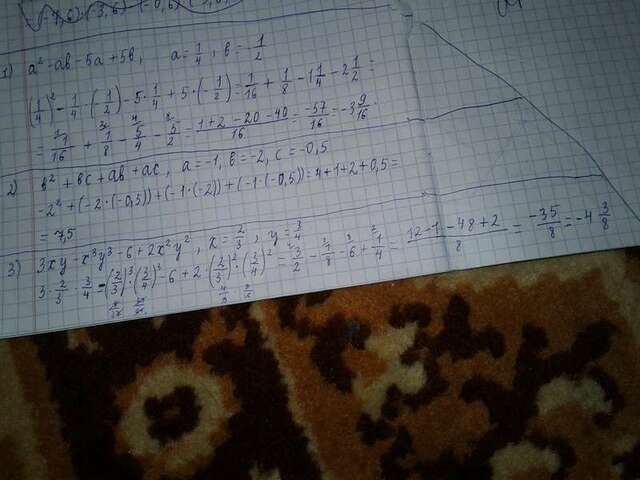 1) a² - ab - 5a + 5b, a = 1/4, b = -1/2
(1/4)² - 1/4 · (-1/2) - 5 · 1/4 + 5 · (-1/2) = 1/16 + 1/8 - 1 1/4 - 2 1/2 =
= 1/16 + 1/8 - 5/4 - 5/2 = (1+2-20-40)/16 = -57/16 = -3 9/16
2) b² + bc + ab + ac, a = -1, b = -2, c = -0,5
-2² + (-2 · (-0,5)) + (-1 · (-2)) + (-1 · (-0,5)) = 4 + 1 + 2 + 0,5 =
= 7,5
3) 3xy - x³y³ - 6 + 2x²y², x = 2/3, y = 3/4
3 · 2/3 · 3/4 - (2/3)³ · (3/4)³ - 6 + 2 · (2/3)² · (3/4)² = 3/2 - 1/8 - 6 + 1/4 = (12-1-48+2)/8 = -35/8 = -4 3/8